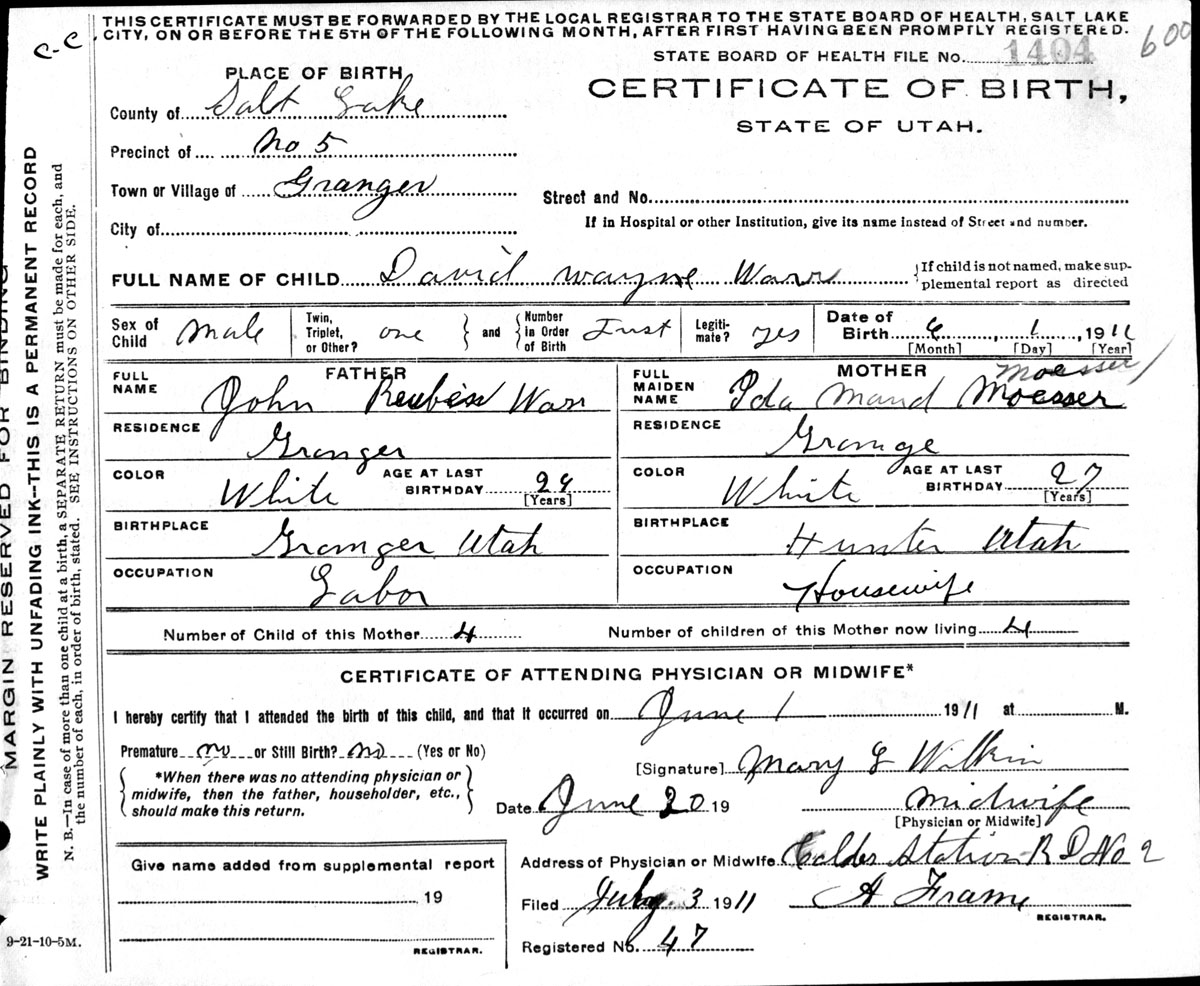 THIS CERTIFICATE MUST BE FORWARDED BY THE LOCAL REGISTRAR TO THE STATE BOARD OF HEALTH, SALT LAKE
CITY, ON OR BEFORE THE 5TH OF THE FOLLOWING MONTH, AFTER FIRST HAVING BEEN PROMPTLY REGISTERED.
C-C
600
STATE BOARD OF HEALTH FILE No. 1404
CERTIFICATE OF BIRTH,
STATE OF UTAH.
PLACE OF BIRTH
County of Salt Lake
Precinct of No 5
Town or Village of Granger
City of
Street and No.
If in Hospital or other Institution, give its name instead of Street and number.
FULL NAME OF CHILD David Wayne Warr
If child is not named, make sup-
plemental report as directed
Sex of Child Male
Twin, Triplet, or Other? one
and Number in Order of Birth
Legiti-mate? yes
Date of Birth 6 1, 1911
[Month] [Day] [Year]
FATHER
FULL NAME John Reuben Warr
RESIDENCE Granger
COLOR White
AGE AT LAST BIRTHDAY
[Years]
BIRTHPLACE Granger Utah
OCCUPATION Labor
MOTHER
Moesser
FULL MAIDEN NAME Ida Maud Moesser
RESIDENCE Grange
COLOR White
AGE AT LAST BIRTHDAY 27
[Years]
BIRTHPLACE Hunter Utah
OCCUPATION Housewife
Number of Child of this Mother 4
Number of children of this Mother now living 4
CERTIFICATE OF ATTENDING PHYSICIAN OR MIDWIFE*
I hereby certify that I attended the birth of this child, and that it occurred on June 1 1911 at M.
Premature no or Still Birth? no (Yes or No)
*When there was no attending physician or
midwife, then the father, householder, etc.,
should make this return.
[Signature] Mary E Wilkin
Date June 20 19
Midwife
[Physician or Midwife]
Address of Physician or Midwife Calder Station R D No 2
Filed July 3 1911
A Frame
REGISTRAR.
Registered No. 47
Give name added from supplemental report
19
REGISTRAR.
9-21-10-5M.
MARGIN RESERVED FOR BINDING
WRITE PLAINLY WITH UNFADING INK--THIS IS A PERMANENT RECORD
N. B.—In case of more than one child at a birth, a SEPARATE RETURN must be made for each, and
the number of each, in order of birth, stated. SEE INSTRUCTIONS ON OTHER SIDE.